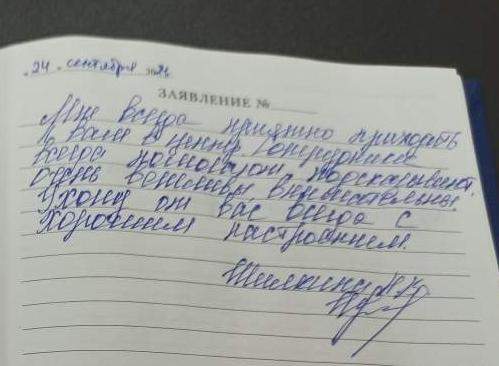 „24" сентября 2024
ЗАЯВЛЕНИЕ №
Мне всегда приятно приходить
к вам в центр, сотрудники
всегда помогают подсказывают.
очень вежливы внимательны
Ухожу от вас всегда с
хорошим настроением.